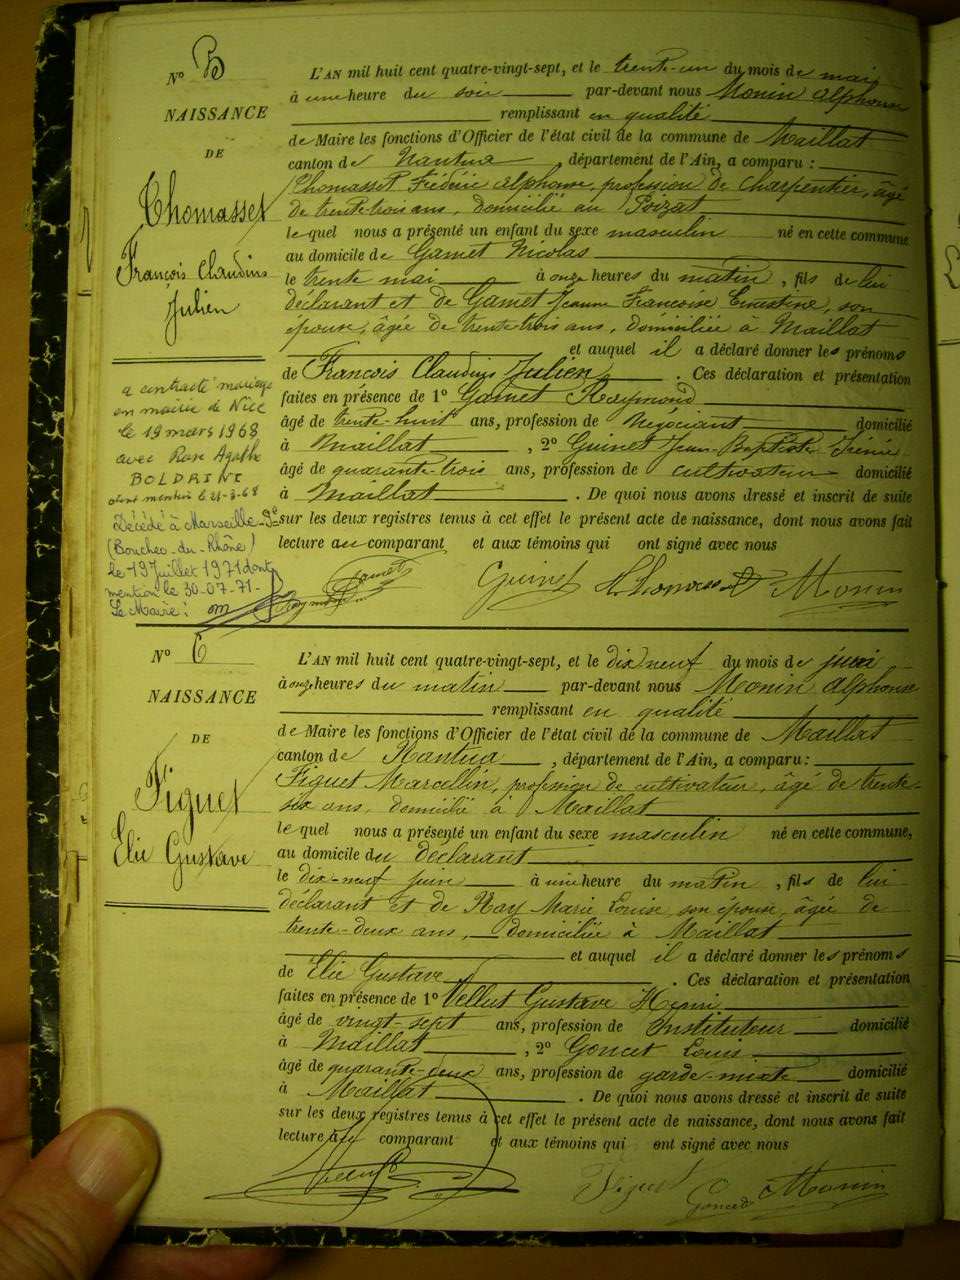 N° 5
NAISSANCE
DE
Thomasset
François Claudius
Julien
a contracté mariage
en mairie de Nice
le 19 mars 1968
avec Rose Agathe
BOLDRINI
dont mention le 21-3-68
Décédé à Marseille-
(Bouches-du-Rhône)
le 19 Juillet 1971 dont
mention le 30-07-71-
Le Maire:
L'AN mil huit cent quatre-vingt-sept, et le trente-un du mois de mai
à une heure du soir par-devant nous Monin Alphonse
remplissant en qualité
de Maire les fonctions d'Officier de l'état civil de la commune de Maillat
canton de Nantua, département de l'Ain, a comparu :
Thomasset Frédéric Alphonse, profession de Charpentier, âgé
de trente-trois ans, domicilié au Poizat
lequel nous a présenté un enfant du sexe masculin né en cette commune
au domicile de Gamet Nicolas
le trente mai à onze heures du matin, fils de lui
déclarant et de Gamet Jeanne Françoise Ernestine, son
épouse, âgée de trente-trois ans, domiciliée à Maillat
et auquel il a déclaré donner les prénoms
de François Claudius Julien. Ces déclaration et présentation
faites en présence de 1° Gamet Raymond
âgé de trente-huit ans, profession de Négociant domicilié
à Maillat, 2° Guinet Jean-Baptiste Irénée
âgé de quarante-trois ans, profession de cultivateur domicilié
à Maillat. De quoi nous avons dressé et inscrit de suite
sur les deux registres tenus à cet effet le présent acte de naissance, dont nous avons fait
lecture au comparant et aux témoins qui ont signé avec nous
Gamet
Raymond Guinet Thomasset Monin
N° 6
NAISSANCE
DE
Figuet
Elie Gustave
L'AN mil huit cent quatre-vingt-sept, et le dix neuf du mois de juin
à onze heures du matin par-devant nous Monin Alphonse
remplissant en qualité
de Maire les fonctions d'Officier de l'état civil de la commune de Maillat
canton de Nantua, département de l'Ain, a comparu :
Figuet Marcellin, profession de cultivateur, âgé de trente-
six ans, domicilié à Maillat
lequel nous a présenté un enfant du sexe masculin né en cette commune,
au domicile du déclarant
le dix-neuf juin à une heure du matin, fils de lui
déclarant et de Ray Marie Louise, son épouse, âgée de
trente-deux ans, domiciliée à Maillat
et auquel il a déclaré donner les prénoms
de Elie Gustave. Ces déclaration et présentation
faites en présence de 1° Vellut Gustave Henri
âgé de vingt-sept ans, profession de Instituteur domicilié
à Maillat, 2° Goncet Louis
âgé de quarante-deux ans, profession de garde-mixte domicilié
à Maillat. De quoi nous avons dressé et inscrit de suite
sur les deux registres tenus à cet effet le présent acte de naissance, dont nous avons fait
lecture au comparant et aux témoins qui ont signé avec nous
Vellut Figuet Goncet Monin